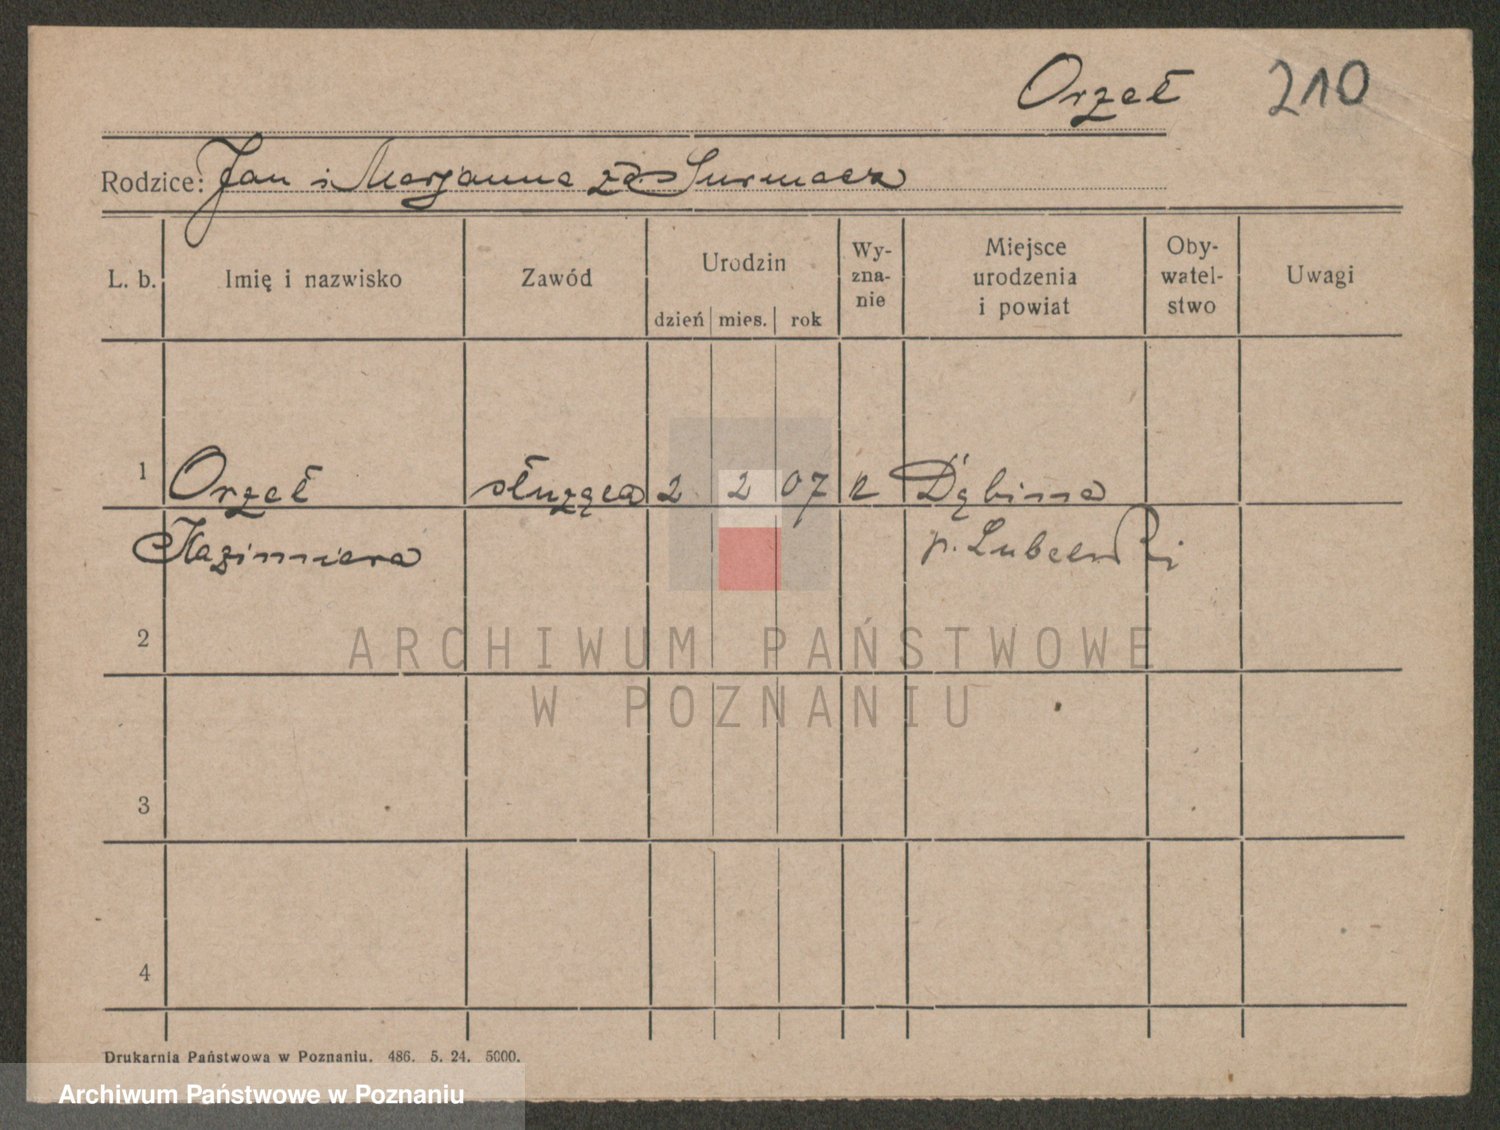 Orzeł 210
Rodzice: Jan i Marjanna zd. Surmacz
L. b. Imię i nazwisko Zawód Urodzin Wy-zna-nie Miejsce urodzenia i powiat Oby-watel-stwo Uwagi
dzień mies. rok
1 Orzeł służąca 2 2 07 r Dąbina
Kazimiera p. Lubelski
2
ARCHIWUM PAŃSTWOWE
W POZNANIU
3
4
Drukarnia Państwowa w Poznaniu. 486. 5. 24. 5000.
Archiwum Państwowe w Poznaniu